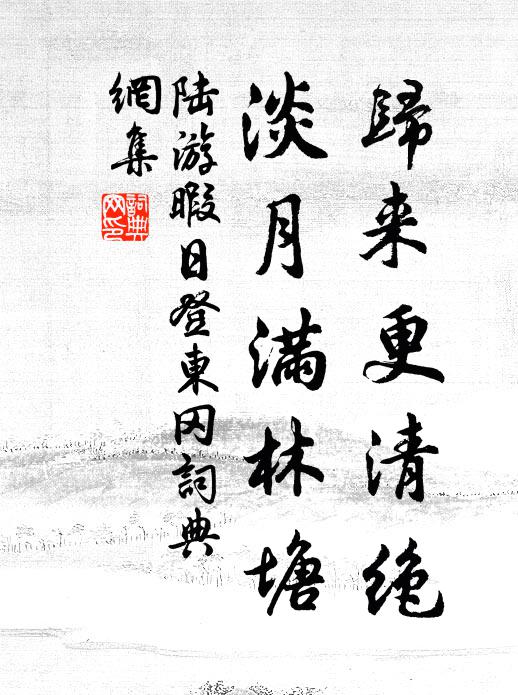 歸来更清絶
淡月满林塘
陆游暇日登東冈詞典
網集
詞典
网印